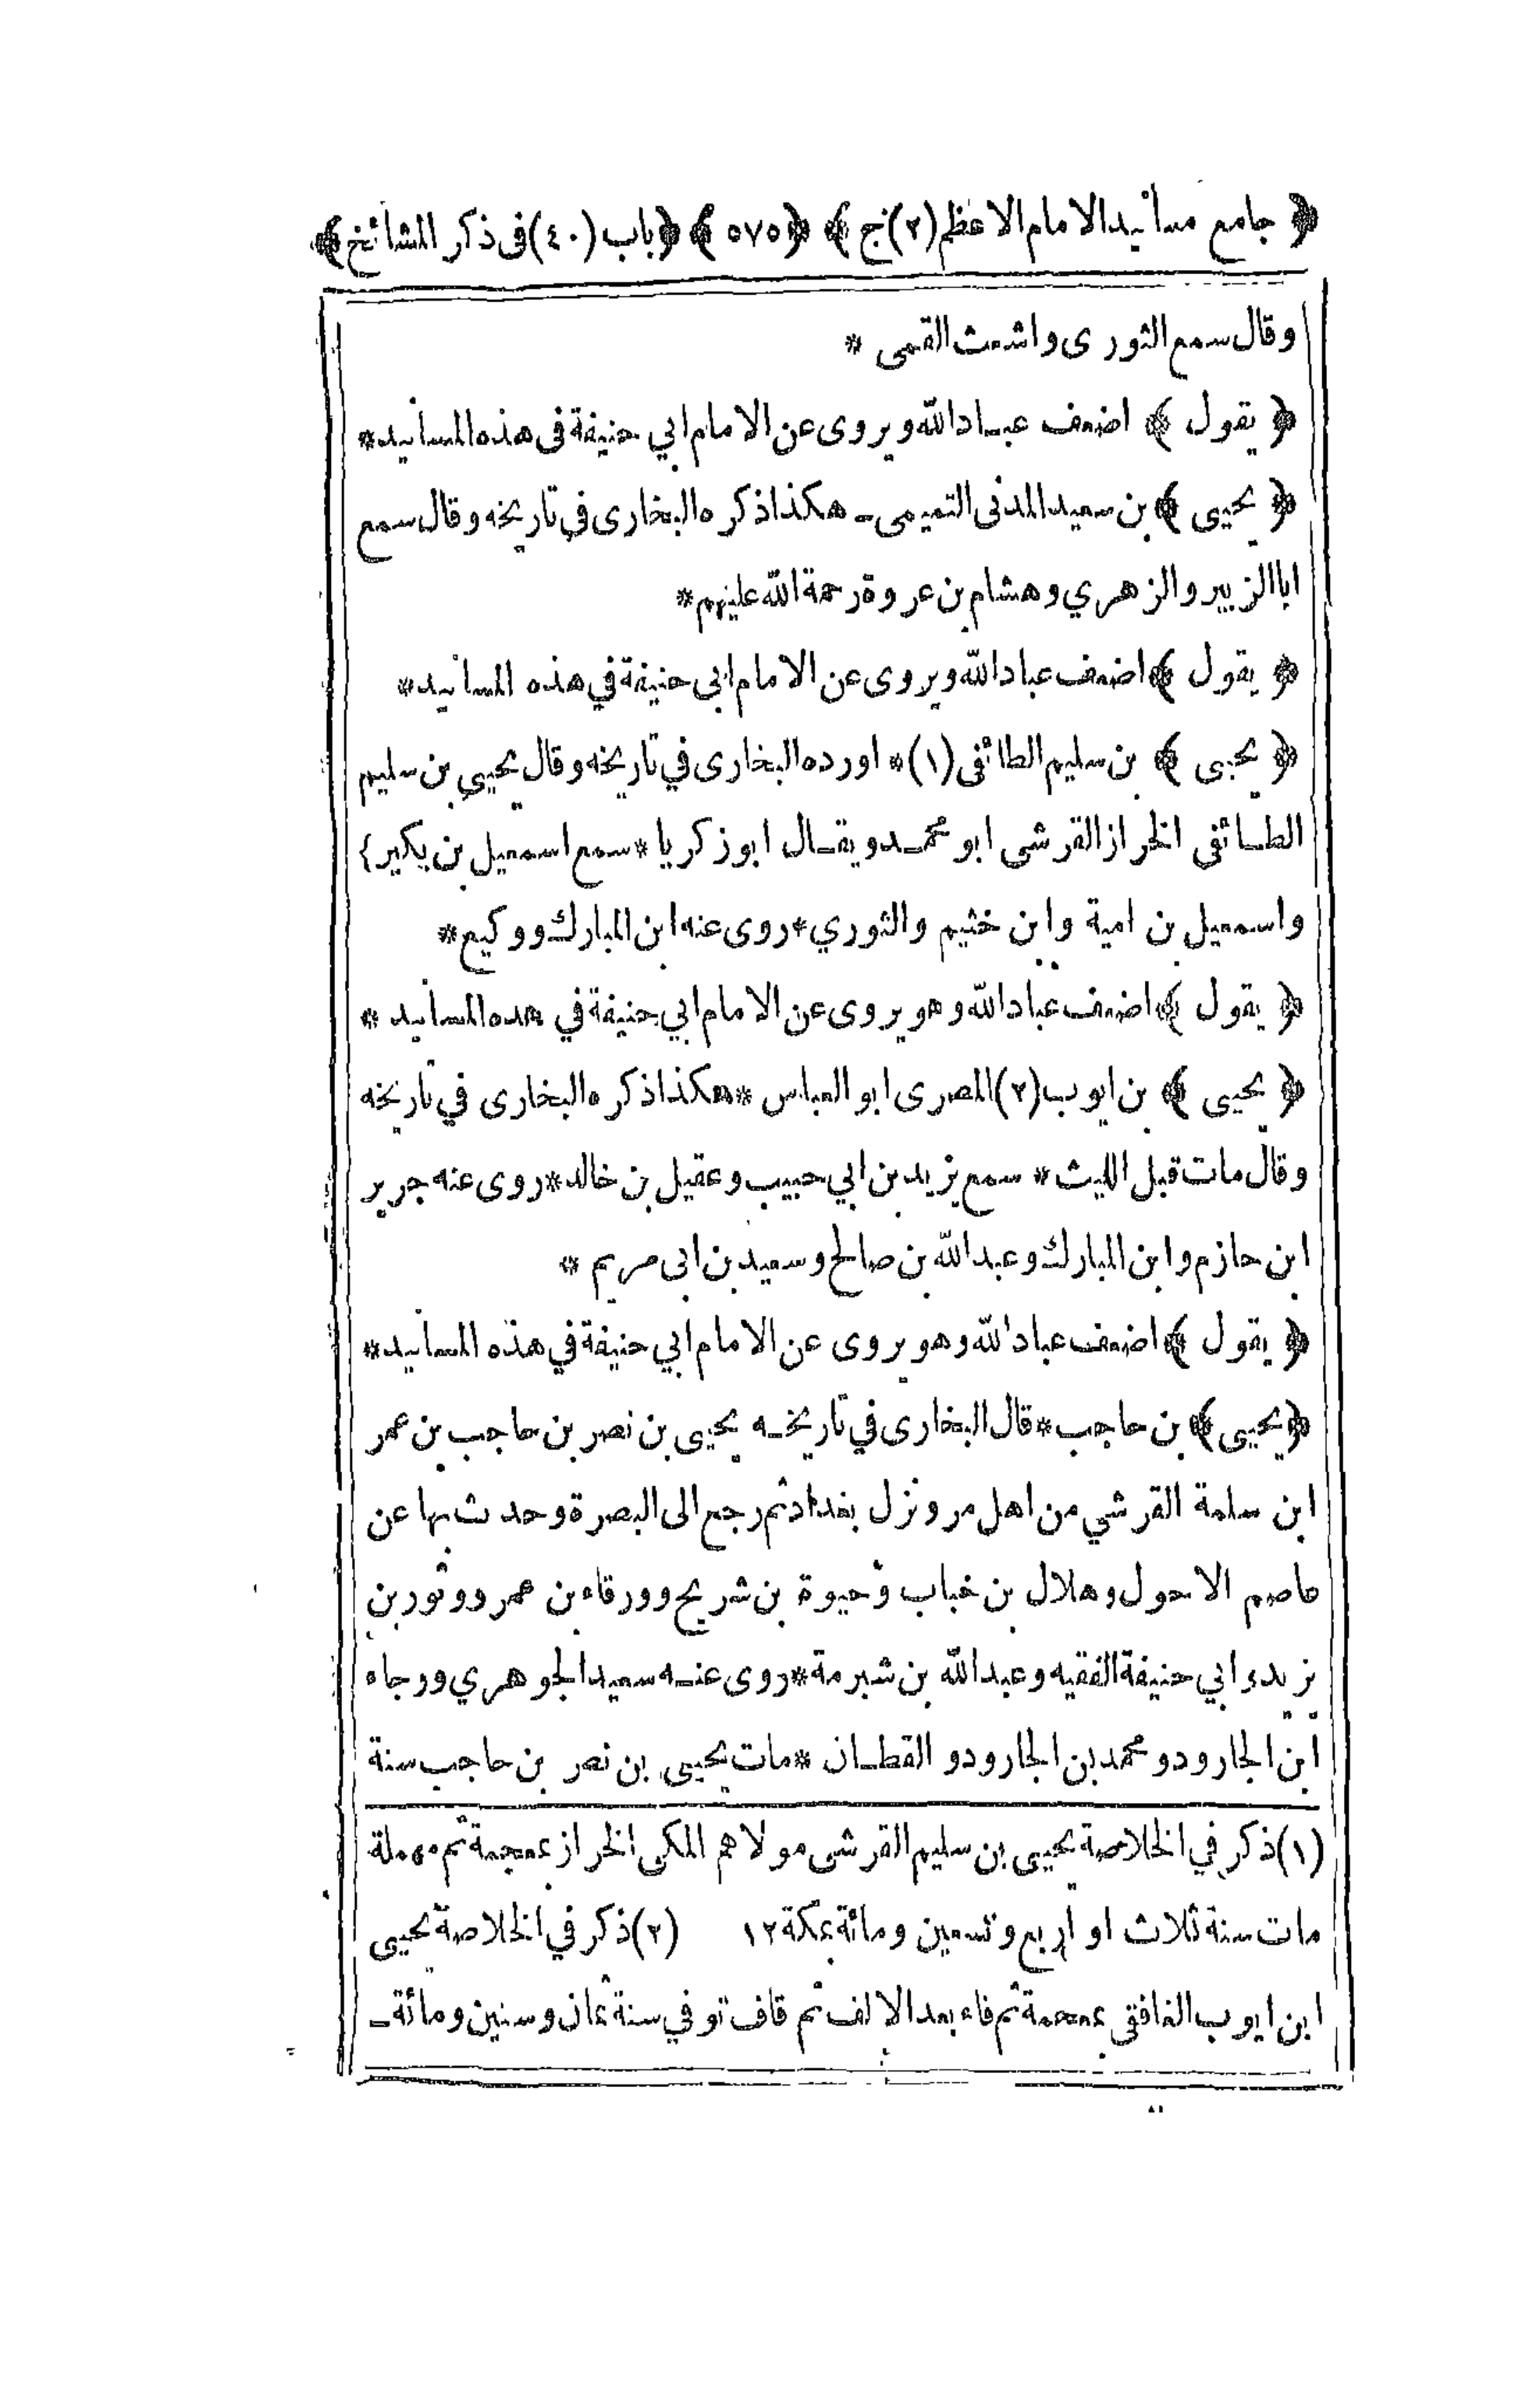 ﴿ جامع مسانيد الامام الاعظم (٢) ج ﴾ ﴿ ٥٧٥ ﴾ ﴿ باب (٤٠) فى ذكر المشائخ ﴾
وقال سمع الثورى واشعث القمى *
﴿ يقول ﴾ اضعف عباد الله ويروى عن الامام ابي حنيفة فى هذه المسانيد *
﴿ يحيى ﴾ بن سعيد المدنى التميمى ـ هكذا ذكره البخارى في تاريخه وقال سمع
ابا الزبير والزهري وهشام بن عروة رحمة الله عليهم *
﴿ يقول ﴾ اضعف عباد الله ويروى عن الامام ابى حنيفة في هذه المسانيد *
﴿ يحيى ﴾ بن سليم الطائفى (١) * اورده البخارى في تاريخه وقال يحيى بن سليم
الطائفى الخراز القرشى ابو محمد ويقال ابو زكريا * سمع اسمعيل بن بكير
واسمعيل بن امية وابن خثيم والثوري * روى عنه ابن المبارك ووكيع *
﴿ يقول ﴾ اضعف عباد الله وهو يروى عن الامام ابي حنيفة في هده المسانيد *
﴿ يحيى ﴾ بن ايوب (٢) المصرى ابو العباس * هكذا ذكره البخارى في تاريخه
وقال مات قبل الليث * سمع يزيد بن ابي حبيب وعقيل بن خالد * روى عنه جرير
ابن حازم وابن المبارك وعبد الله بن صالح وسعيد بن ابى مريم *
﴿ يقول ﴾ اضعف عباد الله وهو يروى عن الامام ابي حنيفة في هذه المسانيد *
﴿ يحيى ﴾ بن حاجب * قال البخارى في تاريخه يحيى بن نصر بن حاجب بن عمر
ابن سلمة القرشي من اهل مرو نزل بغداد ثم رجع الى البصرة وحدث بها عن
عاصم الاحول وهلال بن خباب وحيوة بن شريح وورقاء بن عمرو وثور بن
يزيد وابي حنيفة الفقيه وعبد الله بن شبرمة * روى عنه سعيد الجوهري ورجاء
ابن الجارود ومحمد بن الجارود والقطان * مات يحيى بن نصر بن حاجب سنة
(١) ذكر في الخلاصة يحيى بن سليم القرشى مولاهم المكى الخراز بمعجمة ثم مهملة
مات سنة ثلاث او اربع وتسعين ومائة بمكة ١٢ (٢) ذكر في الخلاصة يحيى
ابن ايوب الغافقى بمعجمة ثم فاء بعد الالف ثم قاف توفي سنة ثمان وستين ومائة ـ